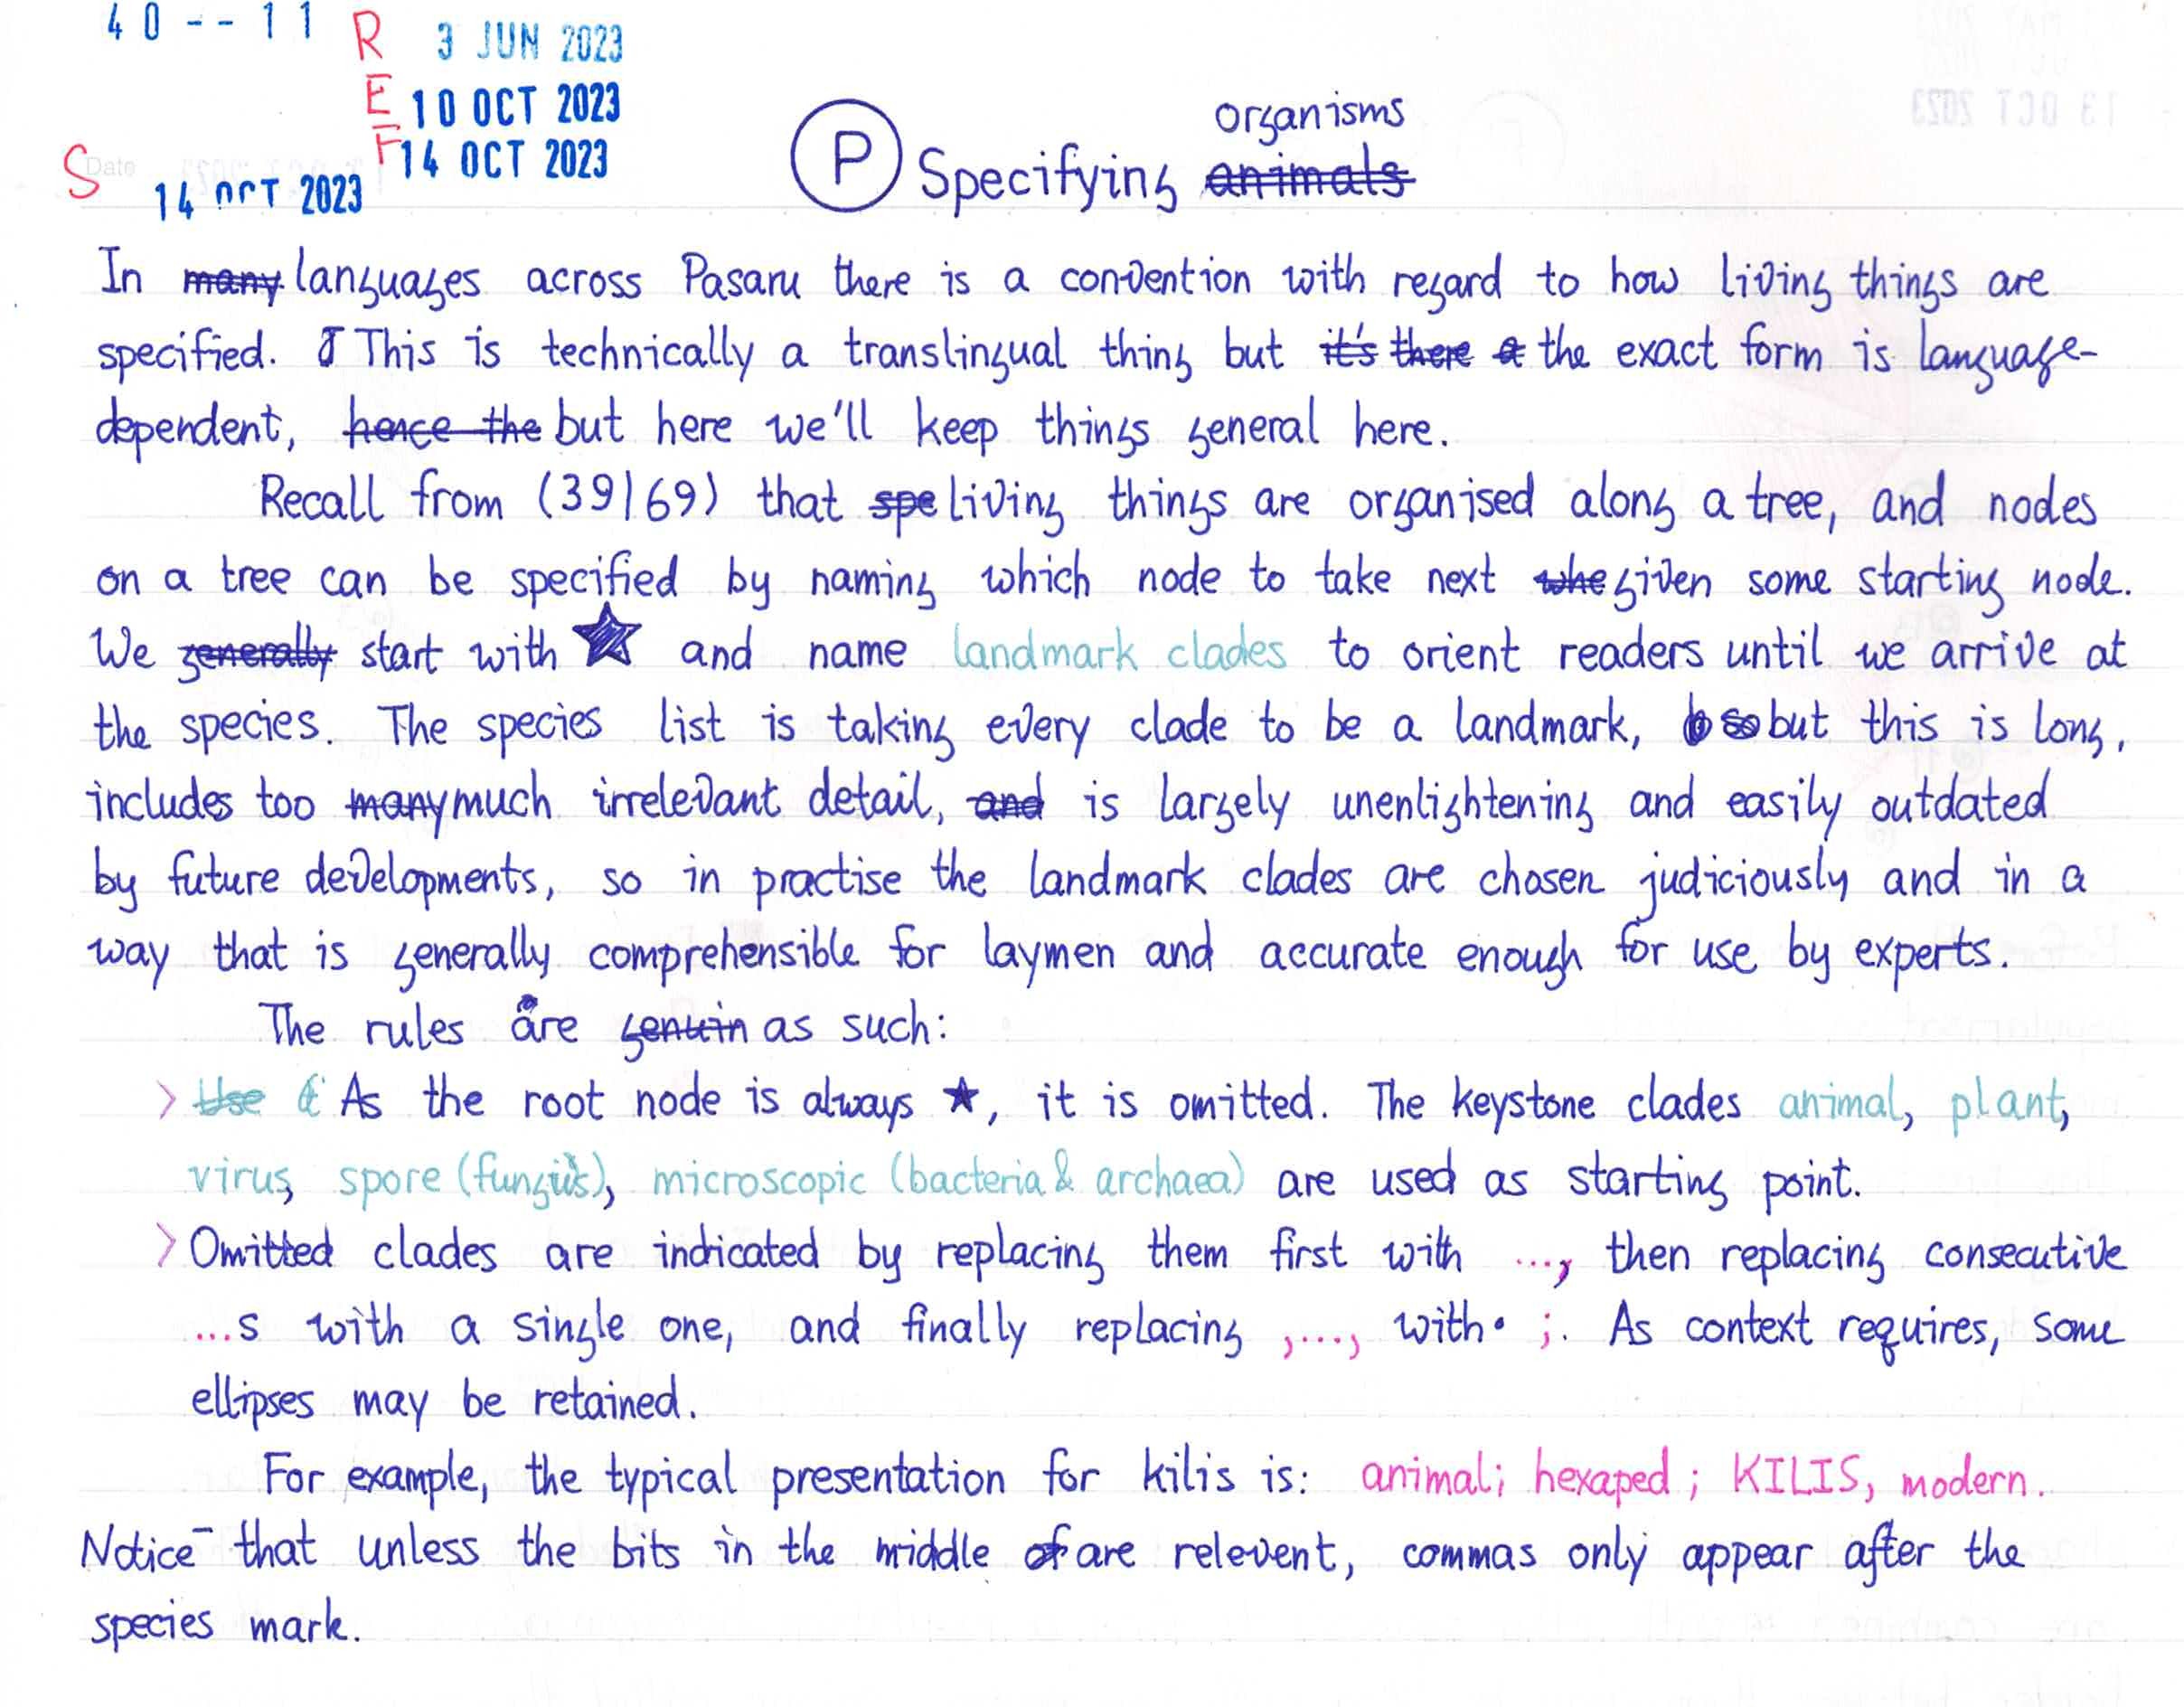 40--11
R 3 JUN 2023
E 10 OCT 2023
F 14 OCT 2023
S Date 14 OCT 2023
organisms
P Specifying animals
In many languages across Pasaru there is a convention with regard to how living things are
specified. This is technically a translingual thing but it's there a the exact form is language-
dependent, hence the but here we'll keep things general here.
Recall from (39|69) that spe living things are organised along a tree, and nodes
on a tree can be specified by naming which node to take next whe given some starting node.
We generally start with ★ and name landmark clades to orient readers until we arrive at
the species. The species list is taking every clade to be a landmark, b so but this is long,
includes too many much irrelevant detail, and is largely unenlightening and easily outdated
by future developments, so in practise the landmark clades are chosen judiciously and in a
way that is generally comprehensible for laymen and accurate enough for use by experts.
The rules are as such:
> Use As the root node is always ★, it is omitted. The keystone clades animal, plant,
virus, spore (fungus), microscopic (bacteria & archaea) are used as starting point.
> Omitted clades are indicated by replacing them first with ..., then replacing consecutive
...s with a single one, and finally replacing ,..., with ;. As context requires, some
ellipses may be retained.
For example, the typical presentation for kilis is: animal; hexaped; KILIS, modern.
Notice that unless the bits in the middle of are relevent, commas only appear after the
species mark.